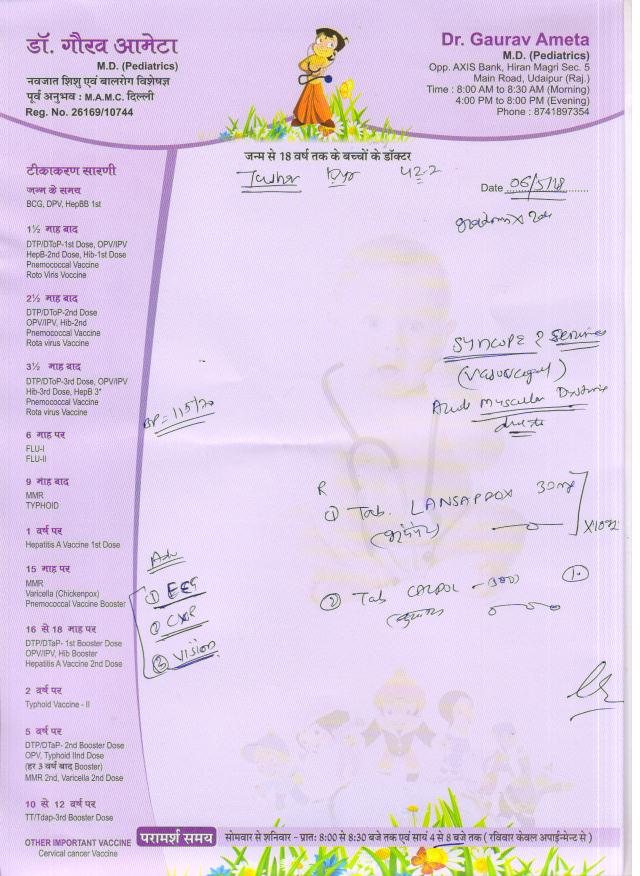 डॉ. गौरव आमेटा
M.D. (Pediatrics)
नवजात शिशु एवं बालरोग विशेषज्ञ
पूर्व अनुभव : M.A.M.C. दिल्ली
Reg. No. 26169/10744
Dr. Gaurav Ameta
M.D. (Pediatrics)
Opp. AXIS Bank, Hiran Magri Sec. 5
Main Road, Udaipur (Raj.)
Time : 8:00 AM to 8:30 AM (Morning)
4:00 PM to 8:00 PM (Evening)
Phone : 8741897354
जन्म से 18 वर्ष तक के बच्चों के डॉक्टर
Date 06/5/18
टीकाकरण सारणी
जन्म के समय
BCG, OPV, HepBB 1st
1½ माह बाद
DTP/DToP-1st Dose, OPV/IPV
HepB-2nd Dose, Hib-1st Dose
Pnemococcal Vaccine
Roto Viris Voccine
2½ माह बाद
DTP/DToP-2nd Dose
OPV/IPV, Hib-2nd
Pnemococcal Vaccine
Rota virus Vaccine
3½ माह बाद
DTP/DTaP-3rd Dose, OPV/IPV
Hib-3rd Dose, HepB 3"
Pnemococcal Vaccine
Rota virus Vaccine
6 माह पर
FLU-I
FLU-II
9 माह बाद
MMR
TYPHOID
1 वर्ष पर
Hepatitis A Vaccine 1st Dose
15 माह पर
MMR
Varicella (Chickenpox)
Pnemococcal Vaccine Booster
16 से 18 माह पर
DTP/DTaP- 1st Booster Dose
OPV/IPV, Hib Booster
Hepatitis A Vaccine 2nd Dose
2 वर्ष पर
Typhoid Vaccine - II
5 वर्ष पर
DTP/DTaP- 2nd Booster Dose
OPV, Typhoid IInd Dose
(हर 3 वर्ष बाद Booster)
MMR 2nd, Varicella 2nd Dose
10 से 12 वर्ष पर
TT/Tdap-3rd Booster Dose
OTHER IMPORTANT VACCINE
Cervical cancer Vaccine
42.2
SYNCOPE ?
(Vasovagal)
Muscular
BP = 115/70
R
① Tab. LANSAPPOX 30mg
② Tab CALPOL
Adv
① EEG
③ VISION
परामर्श समय सोमवार से शनिवार - प्रात: 8:00 से 8:30 बजे तक एवं सायं 4 से 8 बजे तक ( रविवार केवल अपाईन्मेन्ट से )